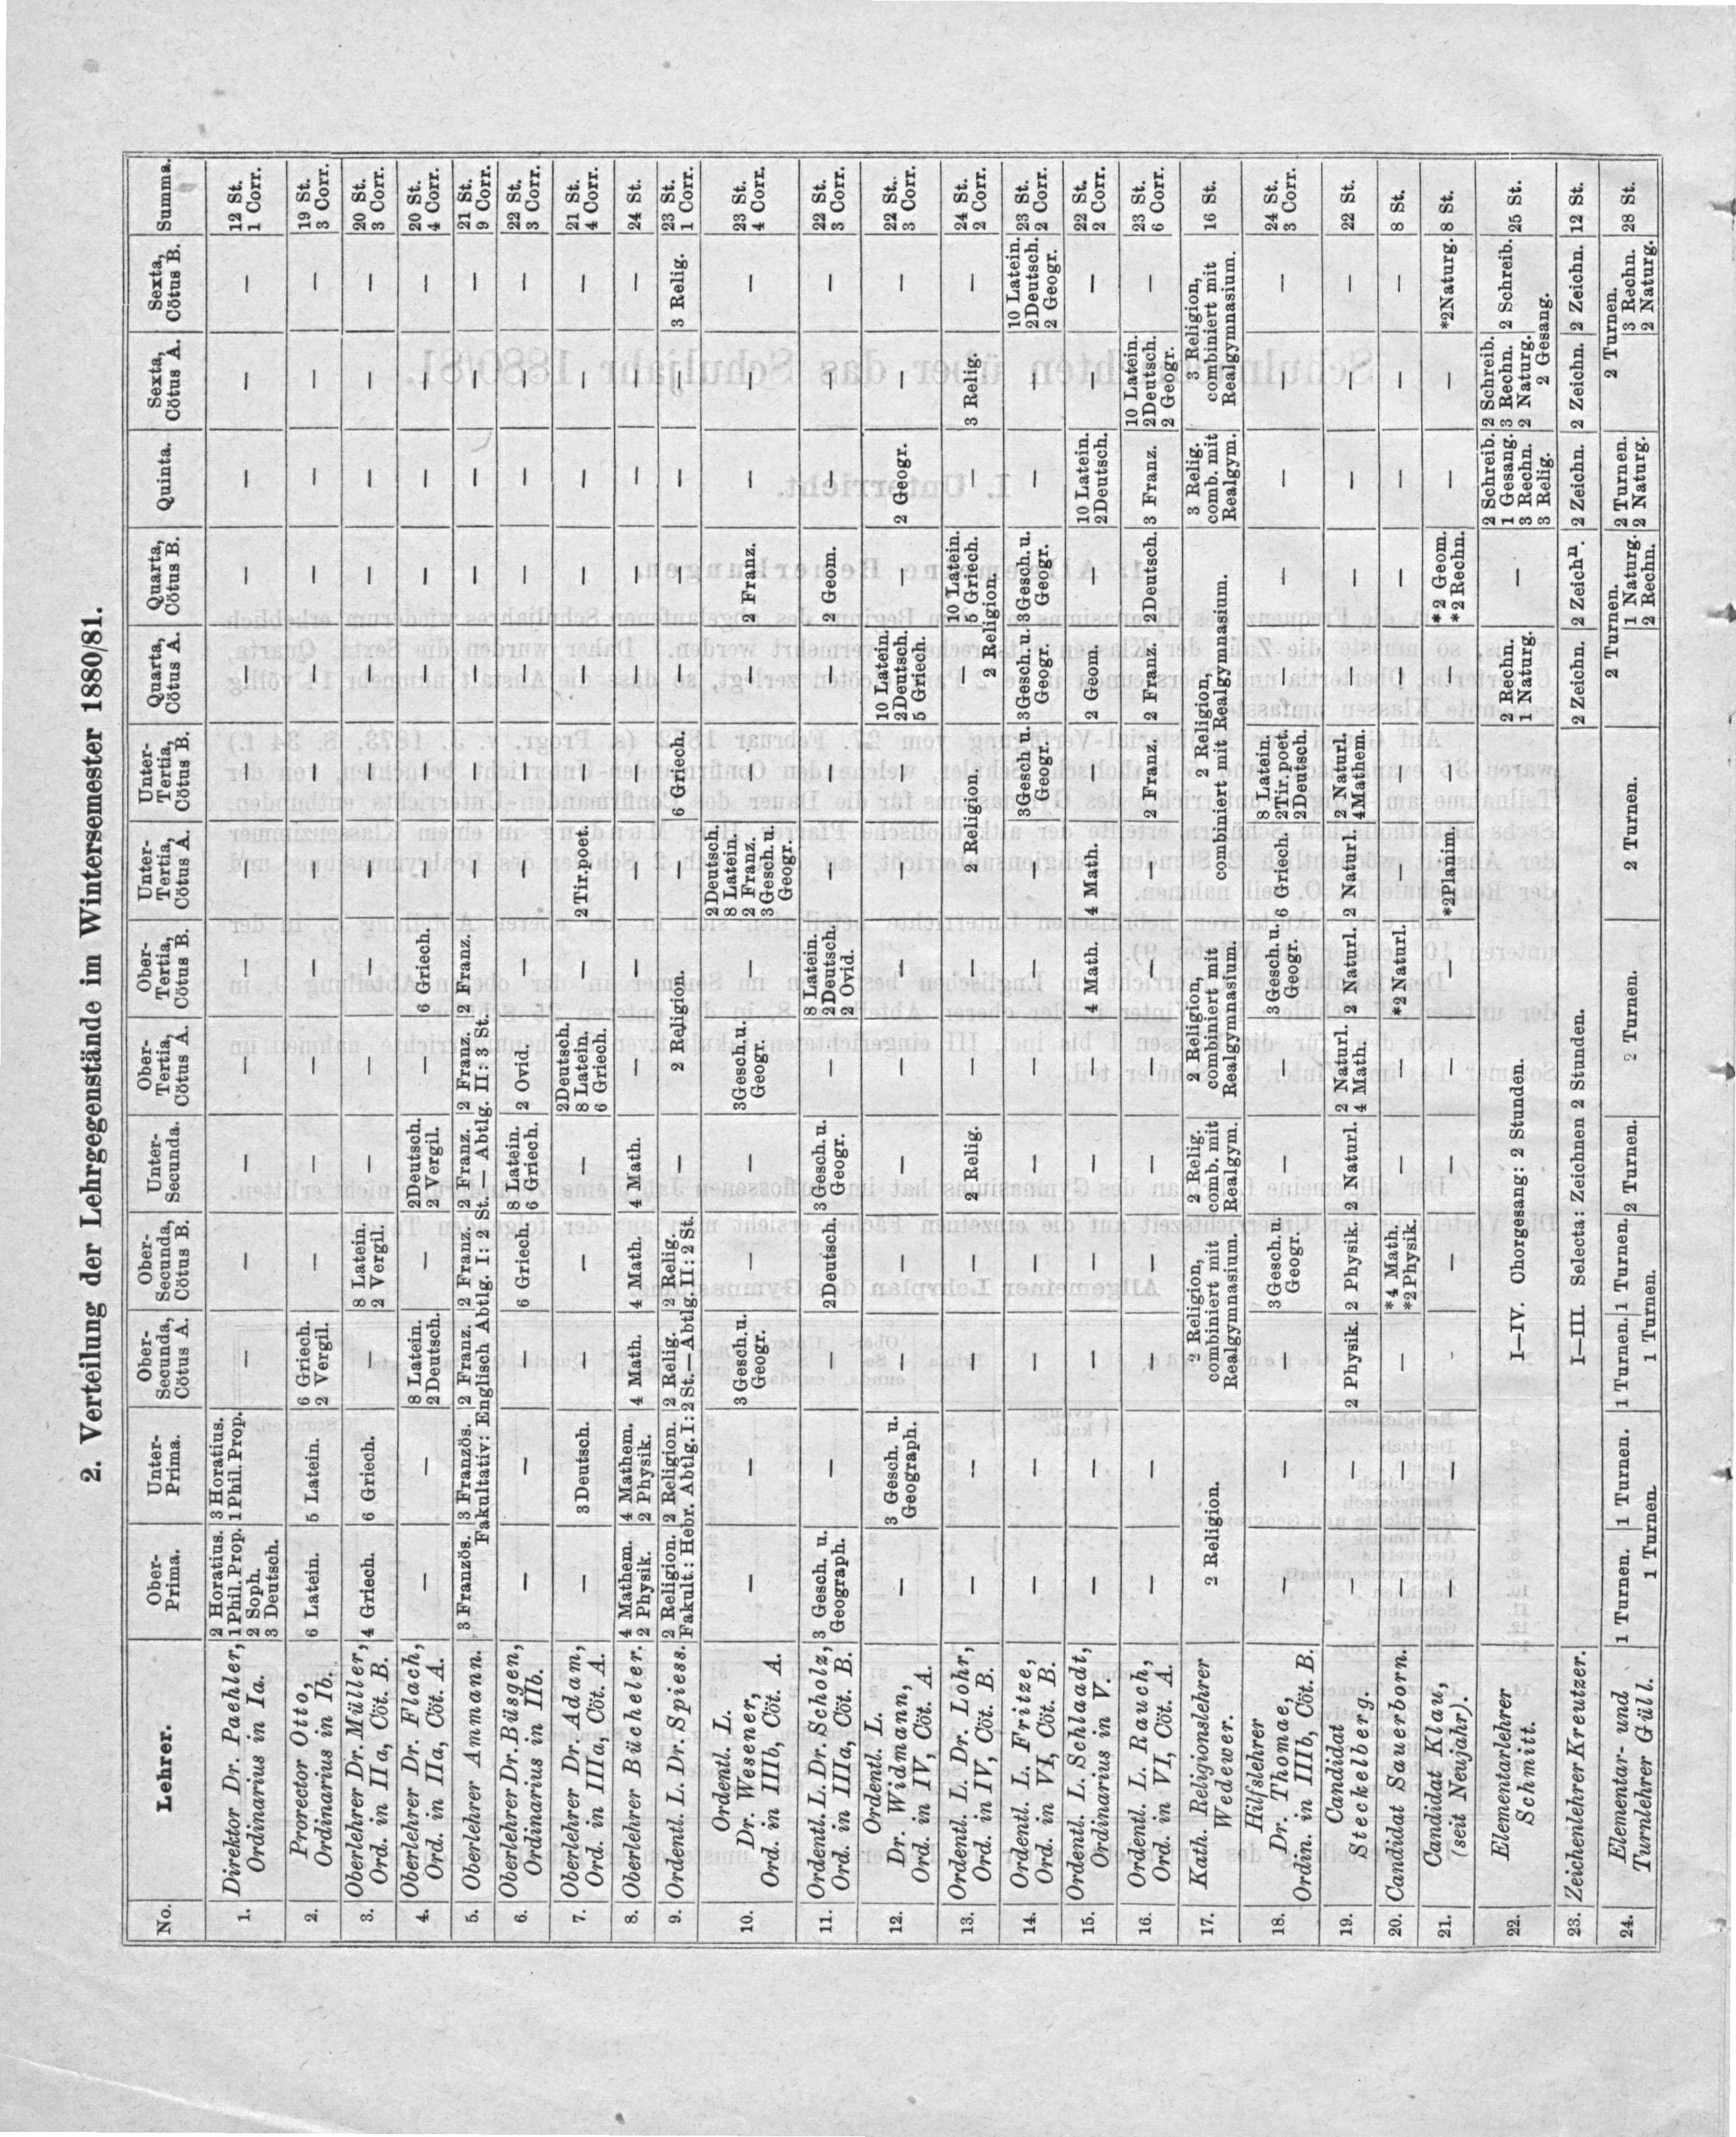 2. Verteilung der Lehrgegenstände im Wintersemester 1880/81.
No. | Lehrer. | Ober-Prima. | Unter-Prima. | Ober-Secunda, Cötus A. | Ober-Secunda, Cötus B. | Unter-Secunda. | Ober-Tertia, Cötus A. | Ober-Tertia, Cötus B. | Unter-Tertia, Cötus A. | Unter-Tertia, Cötus B. | Quarta, Cötus A. | Quarta, Cötus B. | Quinta. | Sexta, Cötus A. | Sexta, Cötus B. | Summa.
1. | Direktor Dr. Paehler, Ordinarius in Ia. | 2 Horatius. 1 Phil. Prop. 2 Soph. 3 Deutsch. | 3 Horatius. 1 Phil. Prop. | — | — | — | — | — | — | — | — | — | — | — | — | 12 St. 1 Corr.
2. | Prorector Otto, Ordinarius in Ib. | 6 Latein. | 5 Latein. | 6 Griech. 2 Vergil. | — | — | — | — | — | — | — | — | — | — | — | 19 St. 3 Corr.
3. | Oberlehrer Dr. Müller, Ord. in IIa, Cöt. B. | 4 Griech. | 6 Griech. | — | 8 Latein. 2 Vergil. | — | — | — | — | — | — | — | — | — | — | 20 St. 3 Corr.
4. | Oberlehrer Dr. Flach, Ord. in IIa, Cöt. A. | — | — | 8 Latein. 2 Deutsch. | — | 2 Deutsch. 2 Vergil. | — | 6 Griech. | — | — | — | — | — | — | — | 20 St. 4 Corr.
5. | Oberlehrer Ammann. | 3 Französ. | 3 Französ. | 2 Franz. | 2 Franz. | 2 Franz. | 2 Franz. | 2 Franz. | — | — | — | — | — | — | — | 21 St. 9 Corr.
Fakultativ: Englisch Abtlg. I: 2 St. — Abtlg. II: 3 St.
6. | Oberlehrer Dr. Büsgen, Ordinarius in IIb. | — | — | — | 6 Griech. | 8 Latein. 6 Griech. | 2 Ovid. | — | — | — | — | — | — | — | — | 22 St. 3 Corr.
7. | Oberlehrer Dr. Adam, Ord. in IIIa, Cöt. A. | — | 3 Deutsch. | — | — | — | 2 Deutsch. 8 Latein. 6 Griech. | — | 2 Tir. poet. | — | — | — | — | — | — | 21 St. 4 Corr.
8. | Oberlehrer Bücheler. | 4 Mathem. 2 Physik. | 4 Mathem. 2 Physik. | 4 Math. | 4 Math. | 4 Math. | — | — | — | — | — | — | — | — | — | 24 St.
9. | Ordentl. L. Dr. Spiess. | 2 Religion. | 2 Religion. | 2 Relig. | 2 Relig. | — | 2 Religion. | — | 6 Griech. | — | — | — | — | 3 Relig. | 23 St. 1 Corr.
Fakult.: Hebr. Abtlg. I: 2 St. — Abtlg II: 2 St.
10. | Ordentl. L. Dr. Wesener, Ord. in IIIb, Cöt. A. | — | — | 3 Gesch. u. Geogr. | — | — | 3 Gesch. u. Geogr. | — | 2 Deutsch. 8 Latein. 2 Franz. 3 Gesch. u. Geogr. | — | — | 2 Franz. | — | — | — | 23 St. 4 Corr.
11. | Ordentl. L. Dr. Scholz, Ord. in IIIa, Cöt. B. | 3 Gesch. u. Geograph. | — | — | 2 Deutsch. | 3 Gesch. u. Geogr. | — | 8 Latein. 2 Deutsch. 2 Ovid. | — | — | — | 2 Geom. | — | — | — | 22 St. 3 Corr.
12. | Ordentl. L. Dr. Widmann, Ord. in IV, Cöt. A. | — | 3 Gesch. u. Geograph. | — | — | — | — | — | — | — | 10 Latein. 2 Deutsch. 5 Griech. | — | 2 Geogr. | — | — | 22 St. 3 Corr.
13. | Ordentl. L. Dr. Lohr, Ord. in IV, Cöt. B. | — | — | — | — | 2 Relig. | — | — | 2 Religion. | — | 10 Latein. 5 Griech. | — | 3 Relig. | — | 24 St. 2 Corr.
2 Religion.
14. | Ordentl. L. Fritze, Ord. in VI, Cöt. B. | — | — | — | — | — | — | — | — | 3 Gesch. u. Geogr. | 3 Gesch. u. Geogr. | 3 Gesch. u. Geogr. | — | — | 10 Latein. 2 Deutsch. 2 Geogr. | 23 St. 2 Corr.
15. | Ordentl. L. Schlaadt, Ordinarius in V. | — | — | — | — | — | — | 4 Math. | 4 Math. | — | 2 Geom. | — | 10 Latein. 2 Deutsch. | — | — | 22 St. 2 Corr.
16. | Ordentl. L. Rauch, Ord. in VI, Cöt. A. | — | — | — | — | — | — | — | — | 2 Franz. | 2 Franz. | 2 Deutsch. | 3 Franz. | 10 Latein. 2 Deutsch. 2 Geogr. | — | 23 St. 6 Corr.
17. | Kath. Religionslehrer Wedewer. | 2 Religion. | 2 Religion, combiniert mit Realgymnasium. | 2 Relig. comb. mit Realgym. | 2 Religion, combiniert mit Realgymnasium. | 2 Religion, combiniert mit Realgymnasium. | 3 Relig. comb. mit Realgym. | 3 Religion, combiniert mit Realgymnasium. | 16 St.
18. | Hilfslehrer Dr. Thomae, Ordin. in IIIb, Cöt. B. | — | — | — | 3 Gesch. u. Geogr. | — | — | 3 Gesch. u. Geogr. | 6 Griech. | 8 Latein. 2 Tir. poet. 2 Deutsch. | — | — | — | — | — | 24 St. 3 Corr.
19. | Candidat Steckelberg. | — | — | 2 Physik. | 2 Physik. | 2 Naturl. | 2 Naturl. 4 Math. | 2 Naturl. | 2 Naturl. | 2 Naturl. 4 Mathem. | — | — | — | — | — | 22 St.
20. | Candidat Sauerborn. | — | — | — | *4 Math. *2 Physik. | — | — | *2 Naturl. | — | — | — | — | — | — | — | 8 St.
21. | Candidat Klau, (seit Neujahr). | — | — | - | — | — | — | — | *2 Planim. | — | — | *2 Geom. *2 Rechn. | — | — | *2 Naturg. | 8 St.
22. | Elementarlehrer Schmitt. | I—IV. Chorgesang: 2 Stunden. | 2 Rechn. 1 Naturg. | — | 2 Schreib. 1 Gesang. 3 Rechn. 3 Relig. | 2 Schreib. 3 Rechn. 2 Naturg. | 2 Schreib. | 25 St.
2 Gesang.
23. | Zeichenlehrer Kreutzer. | I—III. Selecta: Zeichnen 2 Stunden. | 2 Zeichn. | 2 Zeichn. | 2 Zeichn. | 2 Zeichn. | 2 Zeichn. | 12 St.
24. | Elementar- und Turnlehrer Güll. | 1 Turnen. | 1 Turnen. | 1 Turnen. | 1 Turnen. | 2 Turnen. | 2 Turnen. | 2 Turnen. | 2 Turnen. | 2 Turnen. | 1 Naturg. 2 Rechn. | 2 Turnen. 2 Naturg. | 2 Turnen. | 3 Rechn. 2 Naturg. | 28 St.
1 Turnen. | 1 Turnen.